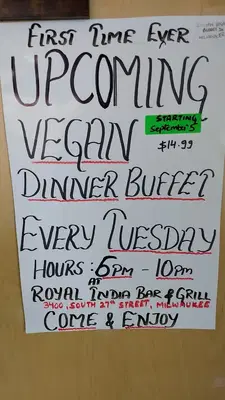 FIRST TIME EVER
UPCOMING
VEGAN
STARTING
September 5
$14.99
DINNER BUFFET
EVERY TUESDAY
HOURS: 6PM - 10PM
AT
ROYAL INDIA BAR & GRILL
3400, SOUTH 27th STREET, MILWAUKEE
COME & ENJOY